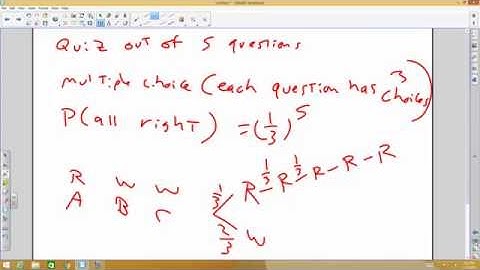 Quiz out of 5 questions
multiple choice (each question has 3 choices)
P(all right) = (1/3)^5
R W W
A B C
1/3 R 1/3 R 1/3 R - R - R
2/3 W